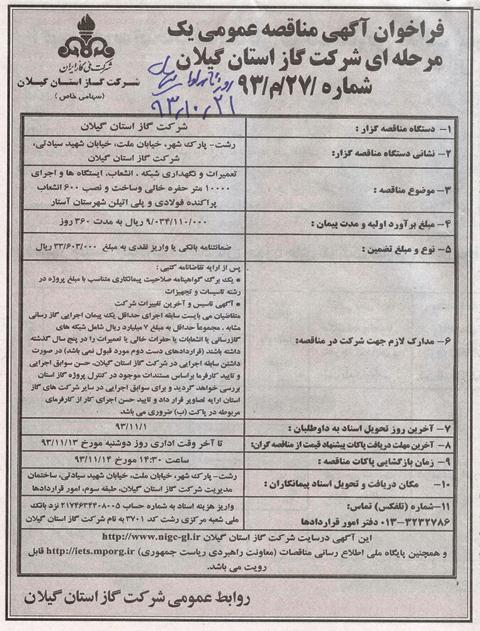 فراخوان آگهی مناقصه عمومی یک
مرحله ای شرکت گاز استان گیلان
شماره /۲۷/م/۹۳
شرکت ملی گاز ایران
شرکت گاز استان گیلان
(سهامی خاص)
۹۳/۱۰/۲۱
۱- دستگاه مناقصه گزار :
شرکت گاز استان گیلان
۲- نشانی دستگاه مناقصه گزار:
رشت- پارک شهر، خیابان ملت، خیابان شهید سیادتی،
شرکت گاز استان گیلان
۳- موضوع مناقصه :
تعمیرات و نگهداری شبکه ، انشعاب، ایستگاه ها و اجرای
۱۰۰۰۰ متر حفره خالی وساخت و نصب ۶۰۰ انشعاب
پراکنده فولادی و پلی اتیلن شهرستان آستار
۴- مبلغ برآورد اولیه و مدت پیمان :
۹/۰۳۴/۱۱۰/۰۰۰ ریال به مدت ۳۶۰ روز
۵- نوع و مبلغ تضمین :
ضمانتنامه بانکی یا واریز نقدی به مبلغ ۳۳/۶۰۳/۰۰۰ ریال
۶- مدارک لازم جهت شرکت در مناقصه:
پس از ارایه تقاضانامه کتبی :
* یک برگ گواهینامه صلاحیت پیمانکاری متناسب با مبلغ پروژه در
رشته تاسیسات و تجهیزات
* آگهی تاسیس و آخرین تغییرات شرکت
متقاضیان می بایست سابقه اجرای حداقل یک پیمان اجرایی گاز رسانی
مشابه ، مجموعاً حداقل به مبلغ ۷ میلیارد ریال شامل شبکه های
گازرسانی یا انشعابات یا حفرات خالی یا تعمیرات را در پنج سال گذشته
داشته باشند. (قراردادهای دست دوم مورد قبول نمی باشد) در صورت
داشتن سابقه اجرایی در شرکت گاز استان گیلان، حسن سوی اجرایی
و تایید کارفرما براساس مستندات موجود در کنترل پروژه گاز استان
بررسی خواهد گردید و برای سوابق اجرایی در سایر شرکت های گاز
استان ارایه تصویر قرار داد و تایید حسن اجرای کار از کارفرمای
مربوطه در پاکت (ب) ضروری می باشد.
۷- آخرین روز تحویل اسناد به داوطلبان :
۹۳/۱۱/۱
۸- آخرین مهلت دریافت پاکات پیشنهاد قیمت از مناقصه گران:
تا آخر وقت اداری روز دوشنبه مورخ ۹۳/۱۱/۱۳
۹- زمان بازگشایی پاکات مناقصه :
ساعت ۱۴:۳۰ مورخ ۹۳/۱۱/۱۴
۱۰- مکان دریافت و تحویل اسناد پیمانکاران :
رشت- پارک شهر، خیابان ملت، خیابان شهید سیادتی، ساختمان
مدیریت شرکت گاز استان گیلان، طبقه سوم، امور قراردادها
۱۱- شماره (تلفکس) تماس:
۰۱۳-۳۲۳۲۷۸۶ دفتر امور قراردادها
واریز هزینه اسناد به شماره حساب ۲۱۷۴۶۳۴۴۰۸۰۰۵ نزد بانک
ملی شعبه مرکزی رشت کد ۳۷۰۱ به نام شرکت گاز استان گیلان
این آگهی درسایت شرکت گاز استان گیلان http://www.nigc-gl.ir
و همچنین پایگاه ملی اطلاع رسانی مناقصات (معاونت راهبردی ریاست جمهوری) http://iets.mporg.ir قابل
رویت می باشد.
روابط عمومی شرکت گاز استان گیلان